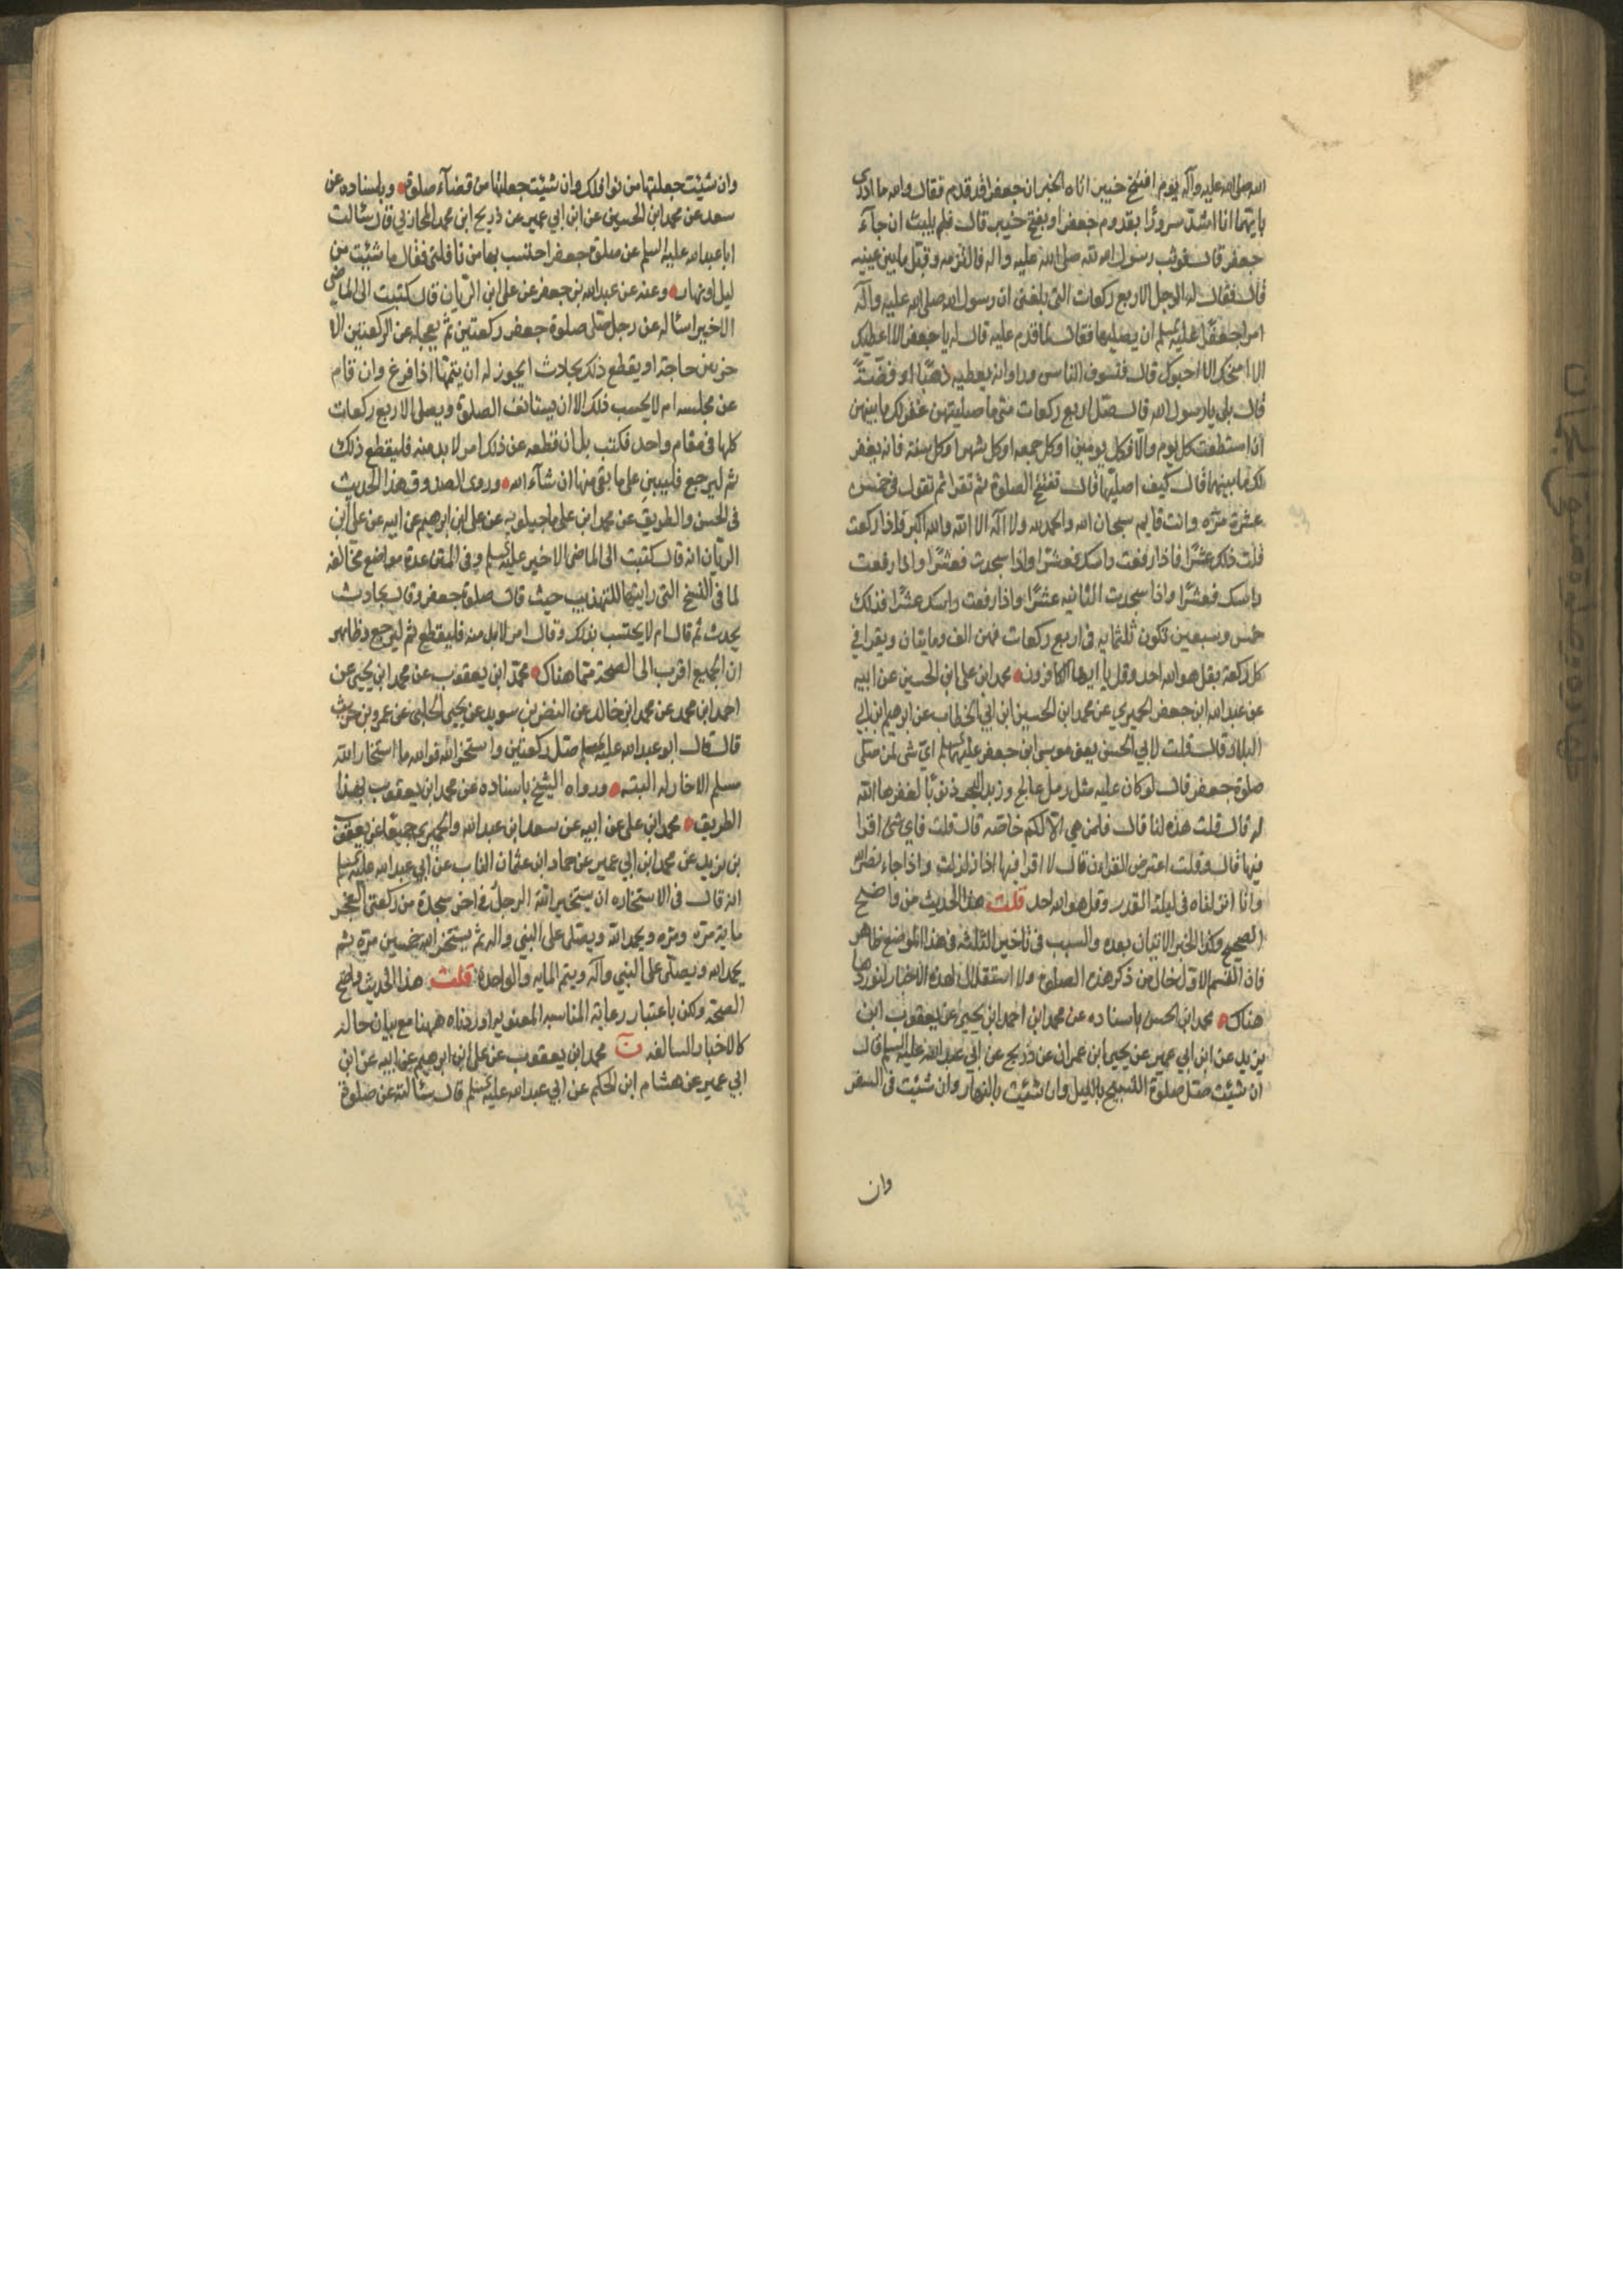 الله صلى الله عليه وآله يوم افتتح خيبر اتاه الخبر ان جعفرا قد قدم فقال والله ما ادري
بايتهما انا اشد سرورا بقدوم جعفر او بفتح خيبر قال فلم يلبث ان جآء
جعفر قال فوثب رسول الله صلى الله عليه واله فالتزمه وقبل ما بين عينيه
قال فقال له الرجل الاربع ركعات التى بلغنى ان رسول الله صلى الله عليه وآله
امر جعفرا عليه السلم ان يصليها فقال لما قدم عليه قال له يا جعفر الا اعطيك
الا امنحك الا احبوك قال فتشوف الناس وراوا انه يعطيه ذهبا او فضة
قال بلى يا رسول الله قال صل اربع ركعات متى ما صليتهن غفر لك ما بينهن
ان استطعت كل يوم والا فكل يومين او كل جمعه او كل شهر او كل سنة فانه يغفر
لك ما بينهما قال كيف اصليها قال تفتتح الصلوة ثم تقرا ثم تقول خمس
عشرة مره وانت قايم سبحان الله والحمد لله ولا اله الا الله والله اكبر فاذا ركعت
قلت ذلك عشرا فاذا رفعت راسك فعشرا واذا سجدت فعشرا واذا رفعت
راسك فعشرا واذا سجدت الثانيه عشرا واذا رفعت راسك عشرا فذلك
خمس وسبعين تكون ثلثمايه فى اربع ركعات فهن الف ومايتان ويقرا في
كل ركعة بقل هو الله احد وقل يا ايها الكافرون محمد ابن على ابن الحسين عن ابيه
عن عبد الله ابن جعفر الحميري عن محمد ابن الحسين ابن ابي الخطاب عن ابرهيم ابن ابي
البلاد قال قلت لابي الحسن يعنى موسى ابن جعفر عليهما السلم اي شى لمن صلى
صلوة جعفر قال لو كان عليه مثل رمل عالج وزبد البحر ذنوبا لغفرها الله
له قال قلت هذه لنا قال فلمن هي الا لكم خاصه قال قلت فاي شئ اقرا
فيها قال وقلت اعترض القران قال لا اقرا فيها اذا زلزلت واذا جاء نصر الله
وانا انزلناه فى ليلة القدر وقل هو الله احد قلت هذا الحديث من واضح
الصحيح وكذا الخبر الاتيان بعده والسبب فى تاخير الثلثه فى هذا الموضع ظاهر
فان القسم الاول خال من ذكر هذه الصلوة ولا استقلال لهذه الاخبار لنوردها
هناك محمد ابن الحسن باسناده عن محمد ابن احمد ابن يحيى عن يعقوب ابن
يزيد عن ابن ابي عمير عن يحيى ابن عمران عن ذريح عن ابي عبد الله عليه السلم قال
ان شئت صل صلوة التسبيح بالليل وان شئت بالنهار وان شئت فى السفر
وان
وان شئت جعلتها من نوافلك وان شئت جعلتها من قضآء صلوة وباسناده عن
سعد عن محمد ابن الحسين عن ابن ابي عمير عن ذريح ابن محمد المحاربي قال سئالت
ابا عبد الله عليه السلم عن صلوة جعفر احتسب بها من نافلتى فقال ما شئت من
ليل او نهار وعنه عن عبد الله بن جعفر عن على ابن الريان قال كتبت الى الماضى
الاخير اسئاله عن رجل صلى صلوة جعفر ركعتين ثم يعجله عن الركعتين الا
خرتين حاجة او يقطع ذلك بحادث ايجوز له ان يتمها اذا فرغ وان قام
عن مجلسه ام لا يحسب ذلك الا ان يستانف الصلوة ويصلى الاربع ركعات
كلها فى مقام واحد فكتب بل ان قطعه عن ذلك امر لا بد منه فليقطع ذلك
ثم ليرجع فليبين على ما بقى منها ان شآء الله وروى الصدوق هذا الحديث
فى الحسن والطريق عن محمد ابن على ماجيلويه عن على ابن ابرهيم عن ابيه عن على ابن
الريان انه قال كتبت الى الماضى الاخير عليه السلم وفى المتن عدة مواضع مخالفه
لما فى النسخ التى رايتها للتهذيب حيث قال صلوة جعفر وقال بحادث
يحدث ثم قال ام لا يحتسب بذلك وقال امر لابد منه فليقطع ثم ليرجع وظاهر
ان الجميع اقرب الى الصحة مما هناك محمد ابن يعقوب عن محمد ابن يحيى عن
احمد ابن محمد عن محمد ابن خالد عن النضر بن سويد عن يحيى الحلبى عن عمرو بن حريث
قال قال ابو عبد الله عليه السلم صل ركعتين واستخر الله فوالله ما استخار الله
مسلم الا خار له البته ورواه الشيخ باسناده عن محمد ابن يعقوب بهذا
الطريق محمد ابن على عن ابيه عن سعد ابن عبد الله والحميرى جميعا عن يعقوب
بن يزيد عن محمد ابن ابي عمير عن حماد ابن عثمان الناب عن ابي عبد الله عليه السلم
انه قال فى الاستخاره ان يستخير الله الرجل فى اخر سجدة من ركعتى الفجر
ماية مره ومره ويحمد الله ويصلى على النبي واله ثم يستخير الله خمسين مرة ثم
يحمد الله ويصلى على النبي وآله ويتم المايه والواحدة قلت هذا الحديث واضح
الصحة ولكن باعتبار رعاية المناسبه المعنويه اوردناه ههنا مع بيان حاله
كالاخبار السالفه ن محمد ابن يعقوب عن على ابن ابرهيم عن ابيه عن ابن
ابي عمير عن هشام ابن الحكم عن ابي عبد الله عليه السلم قال سئالته عن صلوة